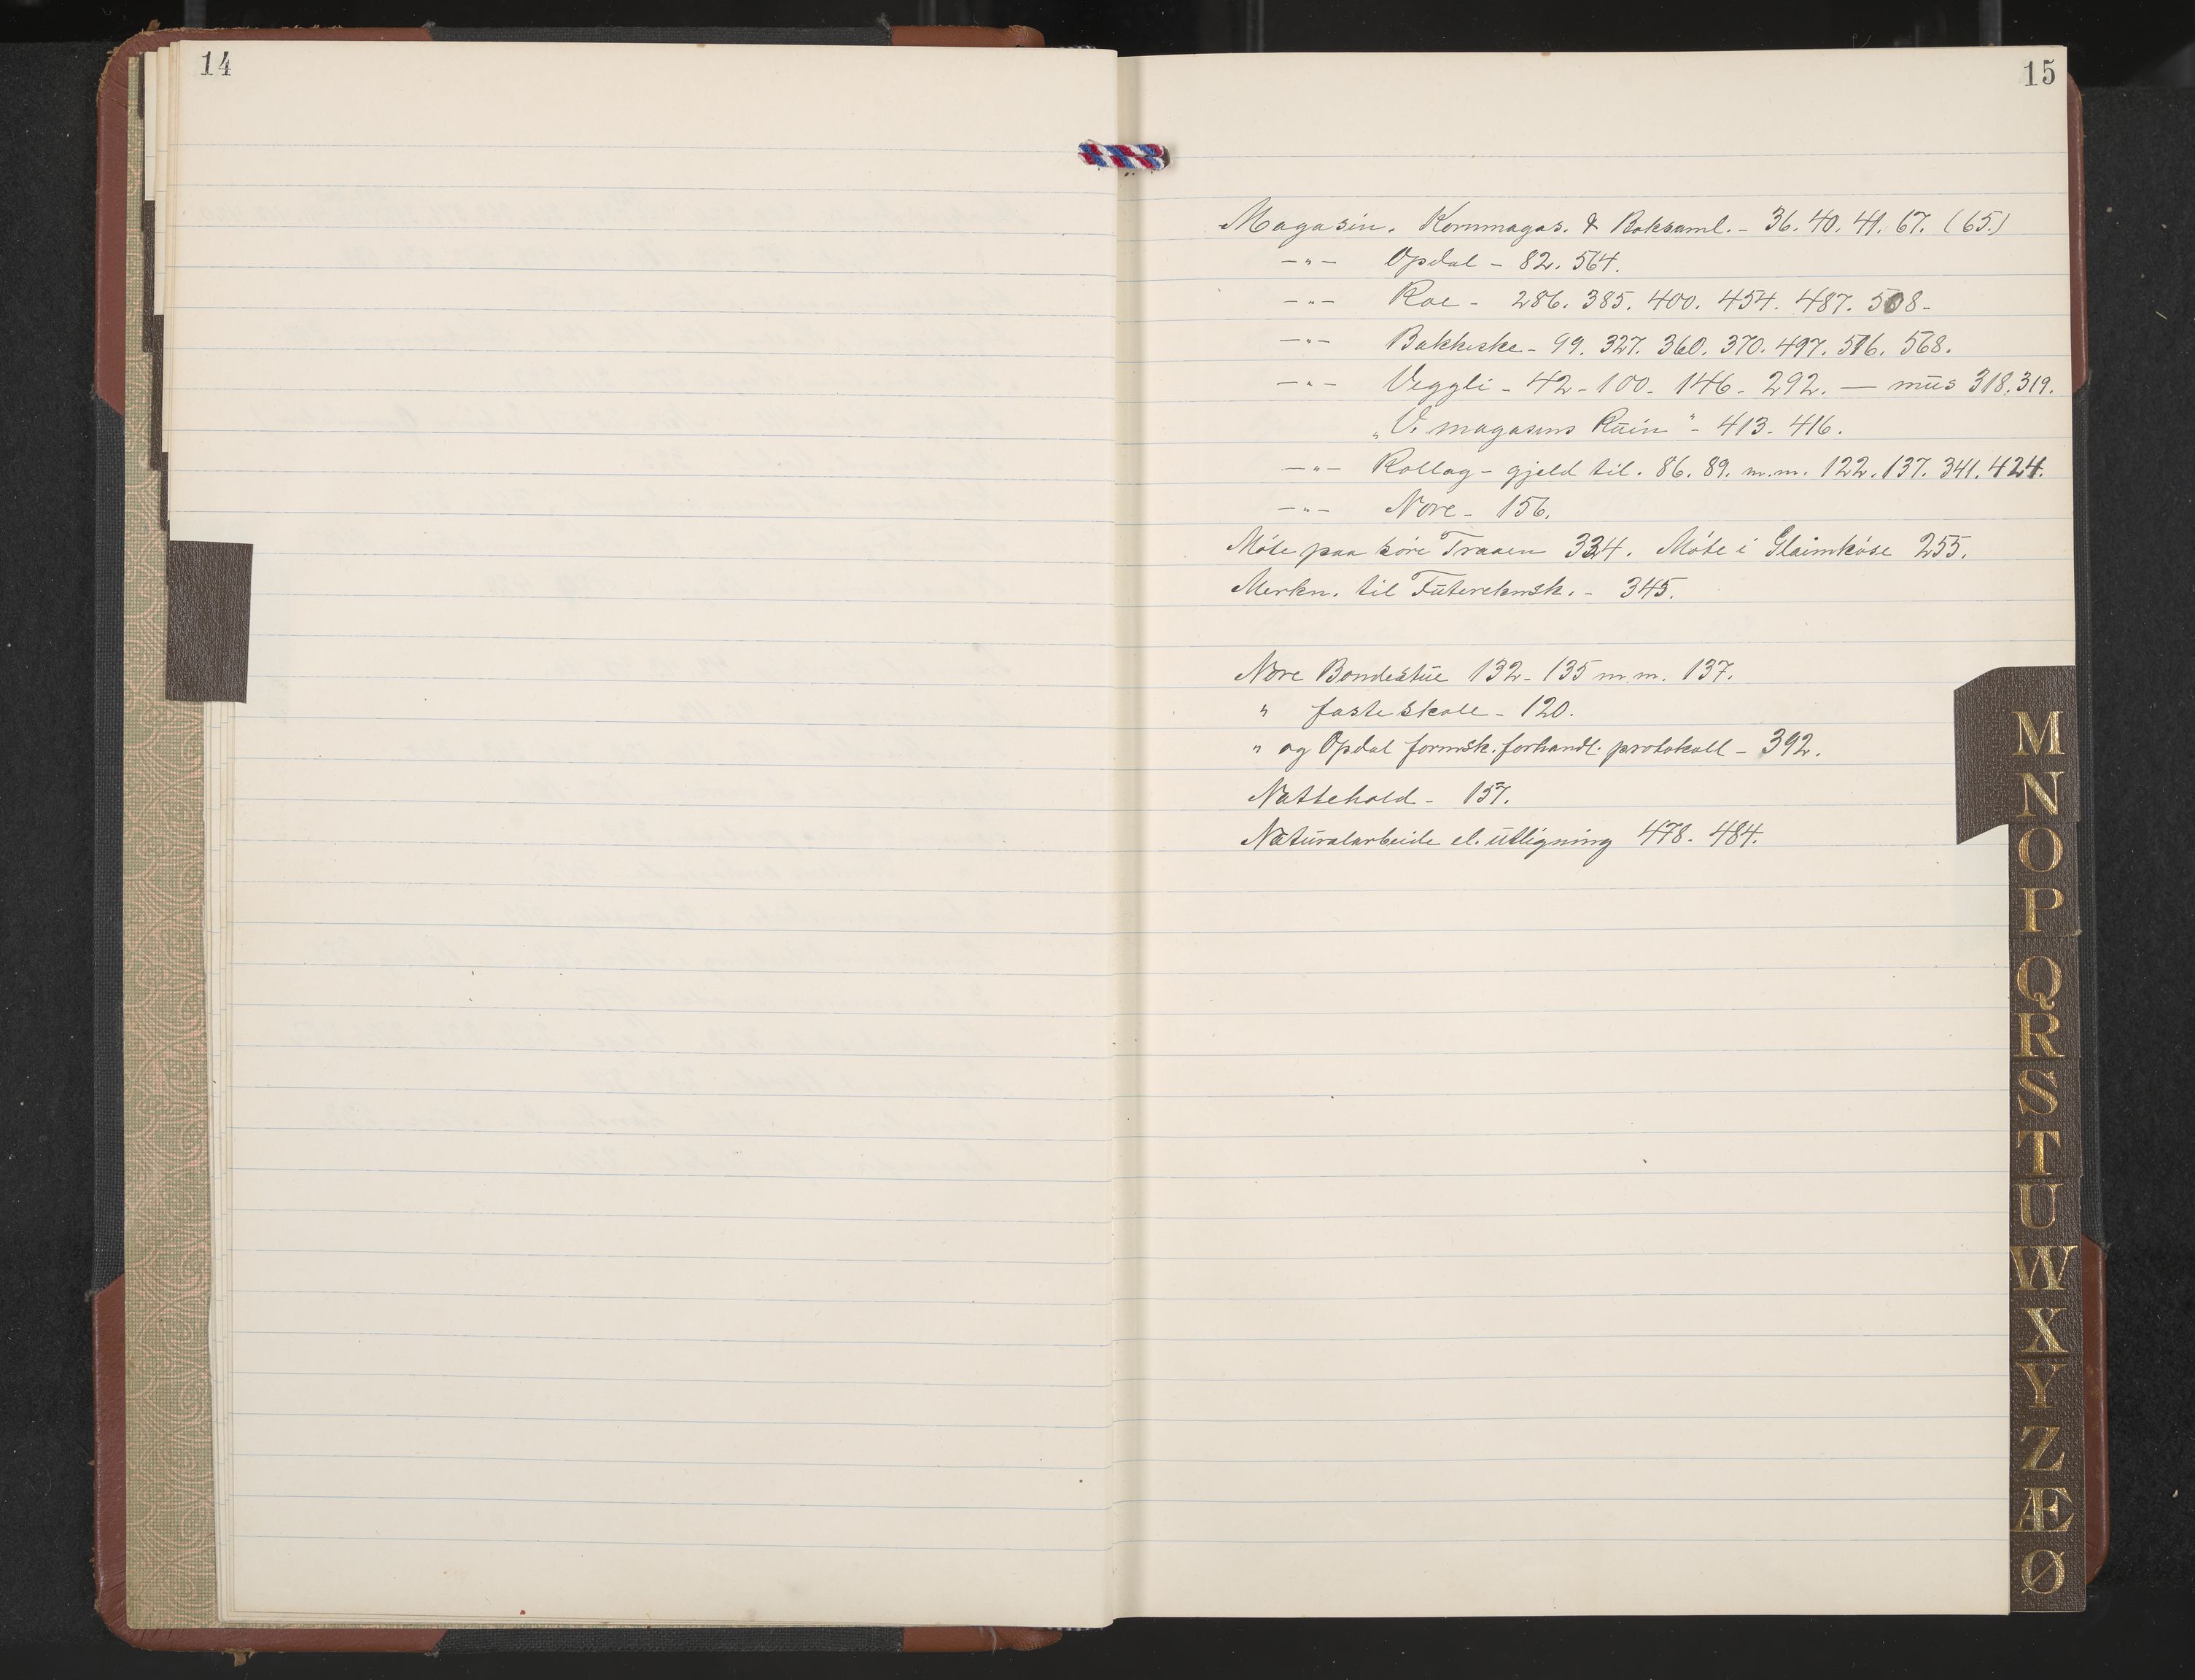 14
15
Magasin. Kornmagas. & Boksaml. - 36. 40. 41. 67. (65.)
-"- Opdal - 82. 564.
-"- Roe - 286. 385. 400. 454. 487. 508-
-"- Bakkeske - 99. 327. 360. 370. 497. 516. 568.
-"- Veggli - 42 - 100 - 146 - 292. — mūs 318. 319.
"V. magasins Rūin" - 413 - 416.
-"- Rollag - gjeld til. 86. 89. m.m. 122. 137. 341. 424.
-"- Nore - 156.
Móte paa sóre Traaen 334. Móte i Glaimhóse 255.
Merkn. til Fūtereknsk. - 345.
Nore Bondestūe 132 - 135 m.m. 137.
" faste skole - 120.
" og Opdal formsk. forhandl. protokoll - 392.
Nattehold - 157.
Natūralarbeide el. ūtligning 478 - 484.
M
N
O
P
Q
R
S
T
U
W
X
Y
Z
Æ
Ø